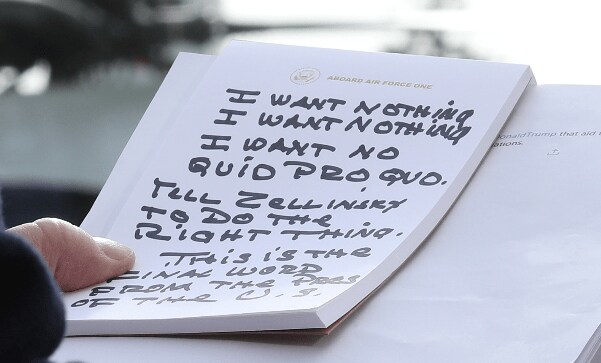 ABOARD AIR FORCE ONE
I WANT NOTHING
I WANT NOTHING
I WANT NO
QUID PRO QUO.
TELL ZELLINSKY
TO DO THE
RIGHT THING.
THIS IS THE
FINAL WORD
FROM THE PRES
OF THE U.S.
DonaldTrump that aid
ations.